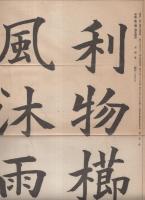 利物櫛
風沐雨